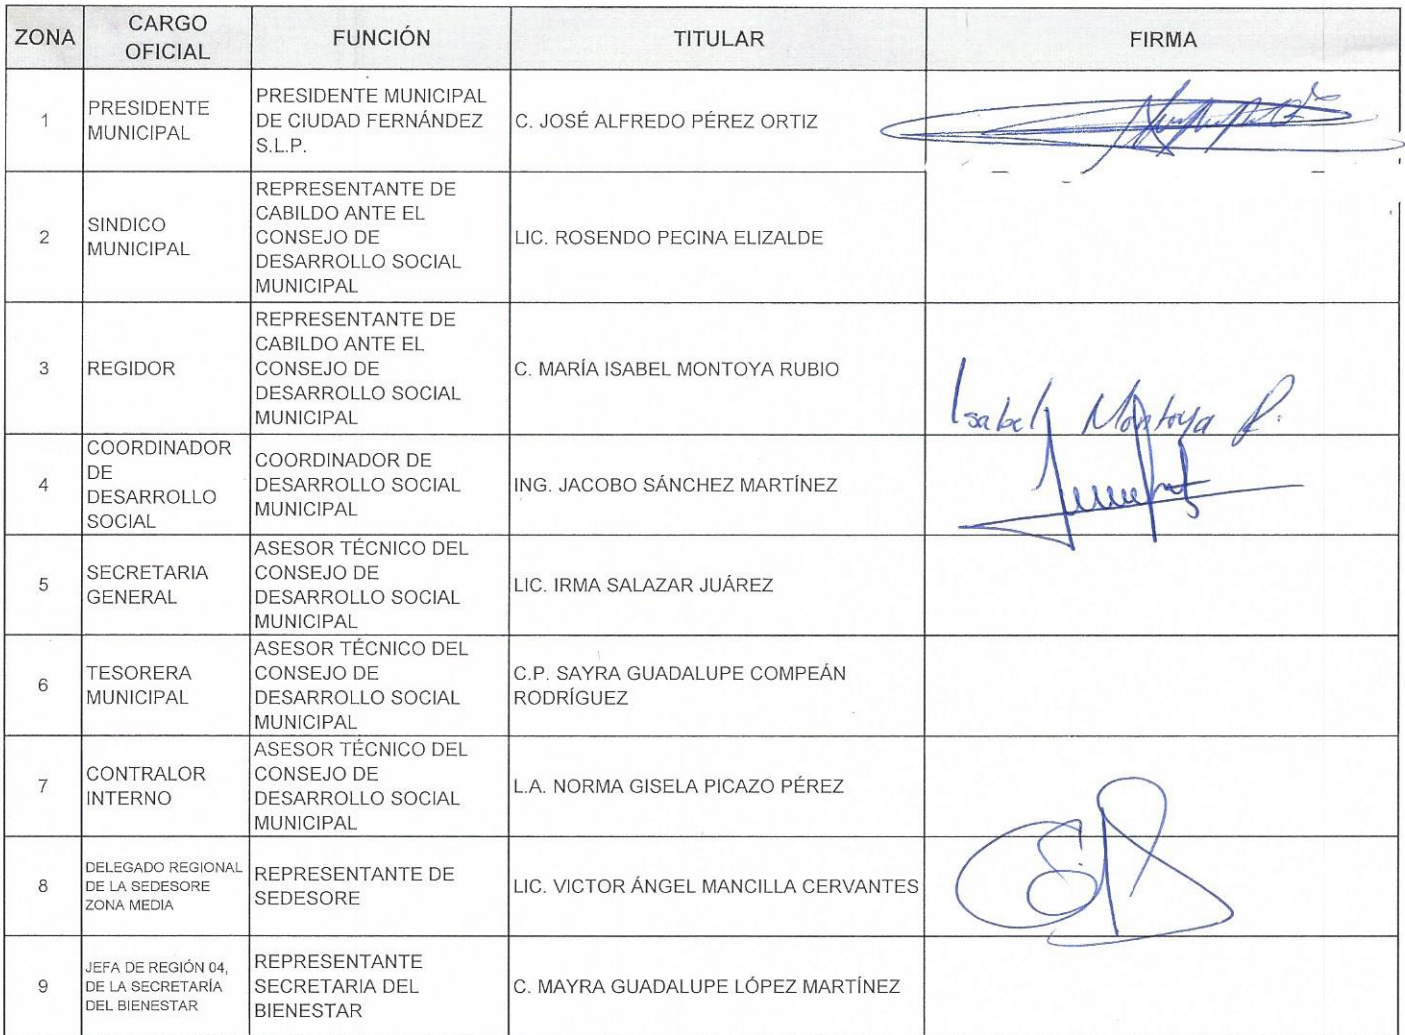 ZONA
CARGO
OFICIAL
FUNCIÓN
TITULAR
FIRMA
1
PRESIDENTE
MUNICIPAL
PRESIDENTE MUNICIPAL
DE CIUDAD FERNÁNDEZ
S.L.P.
C. JOSÉ ALFREDO PÉREZ ORTIZ
2
SINDICO
MUNICIPAL
REPRESENTANTE DE
CABILDO ANTE EL
CONSEJO DE
DESARROLLO SOCIAL
MUNICIPAL
LIC. ROSENDO PECINA ELIZALDE
3
REGIDOR
REPRESENTANTE DE
CABILDO ANTE EL
CONSEJO DE
DESARROLLO SOCIAL
MUNICIPAL
C. MARÍA ISABEL MONTOYA RUBIO
Isabel Montoya R.
4
COORDINADOR
DE
DESARROLLO
SOCIAL
COORDINADOR DE
DESARROLLO SOCIAL
MUNICIPAL
ING. JACOBO SÁNCHEZ MARTÍNEZ
5
SECRETARIA
GENERAL
ASESOR TÉCNICO DEL
CONSEJO DE
DESARROLLO SOCIAL
MUNICIPAL
LIC. IRMA SALAZAR JUÁREZ
6
TESORERA
MUNICIPAL
ASESOR TÉCNICO DEL
CONSEJO DE
DESARROLLO SOCIAL
MUNICIPAL
C.P. SAYRA GUADALUPE COMPEÁN
RODRÍGUEZ
7
CONTRALOR
INTERNO
ASESOR TÉCNICO DEL
CONSEJO DE
DESARROLLO SOCIAL
MUNICIPAL
L.A. NORMA GISELA PICAZO PÉREZ
8
DELEGADO REGIONAL
DE LA SEDESORE
ZONA MEDIA
REPRESENTANTE DE
SEDESORE
LIC. VICTOR ÁNGEL MANCILLA CERVANTES
9
JEFA DE REGIÓN 04,
DE LA SECRETARÍA
DEL BIENESTAR
REPRESENTANTE
SECRETARIA DEL
BIENESTAR
C. MAYRA GUADALUPE LÓPEZ MARTÍNEZ